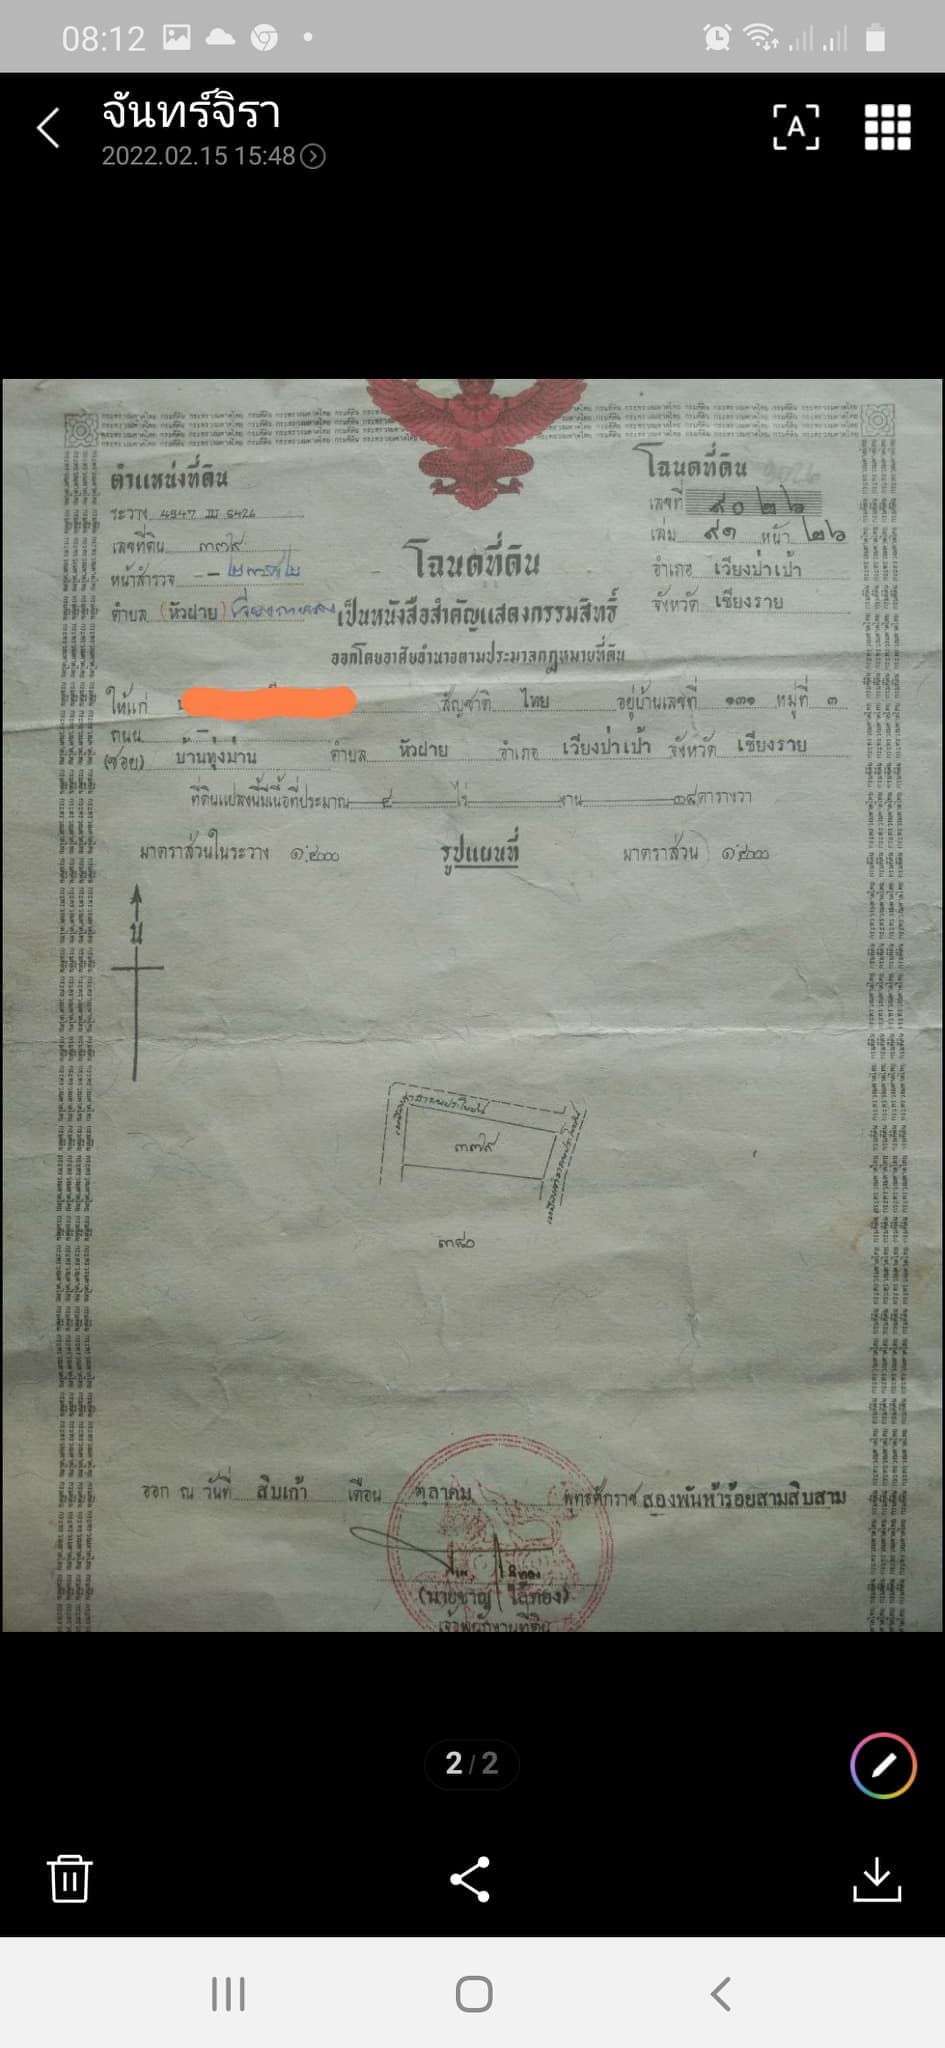 08:12
จันทร์จิรา
2022.02.15 15:48
A
ตำแหน่งที่ดิน
ระวาง 4947 III 6426
เลขที่ดิน ๓๗๙
หน้าสำรวจ
ตำบล (หัวฝาย) เวียงกาหลง
โฉนดที่ดิน
เลขที่ ๙๐๒๖
เล่ม ๙๑ หน้า ๒๖
อำเภอ เวียงป่าเป้า
จังหวัด เชียงราย
โฉนดที่ดิน
เป็นหนังสือสำคัญแสดงกรรมสิทธิ์
ออกโดยอาศัยอำนาจตามประมวลกฎหมายที่ดิน
ให้แก่ สัญชาติ ไทย อยู่บ้านเลขที่ ๑๓๑ หมู่ที่ ๓
ถนน
(ซอย) บ้านทุ่งม่าน ตำบล หัวฝาย อำเภอ เวียงป่าเป้า จังหวัด เชียงราย
ที่ดินแปลงนี้มีเนื้อที่ประมาณ ๔ ไร่ งาน ๓๘ ตารางวา
มาตราส่วนในระวาง ๑:๔๐๐๐ รูปแผนที่ มาตราส่วน ๑:๔๐๐๐
น
๓๗๙
๓๘๐
ออก ณ วันที่ สิบเก้า เดือน ตุลาคม พุทธศักราช สองพันห้าร้อยสามสิบสาม
(นายชาญ ใส้ทอง)
เจ้าพนักงานที่ดิน
2/2